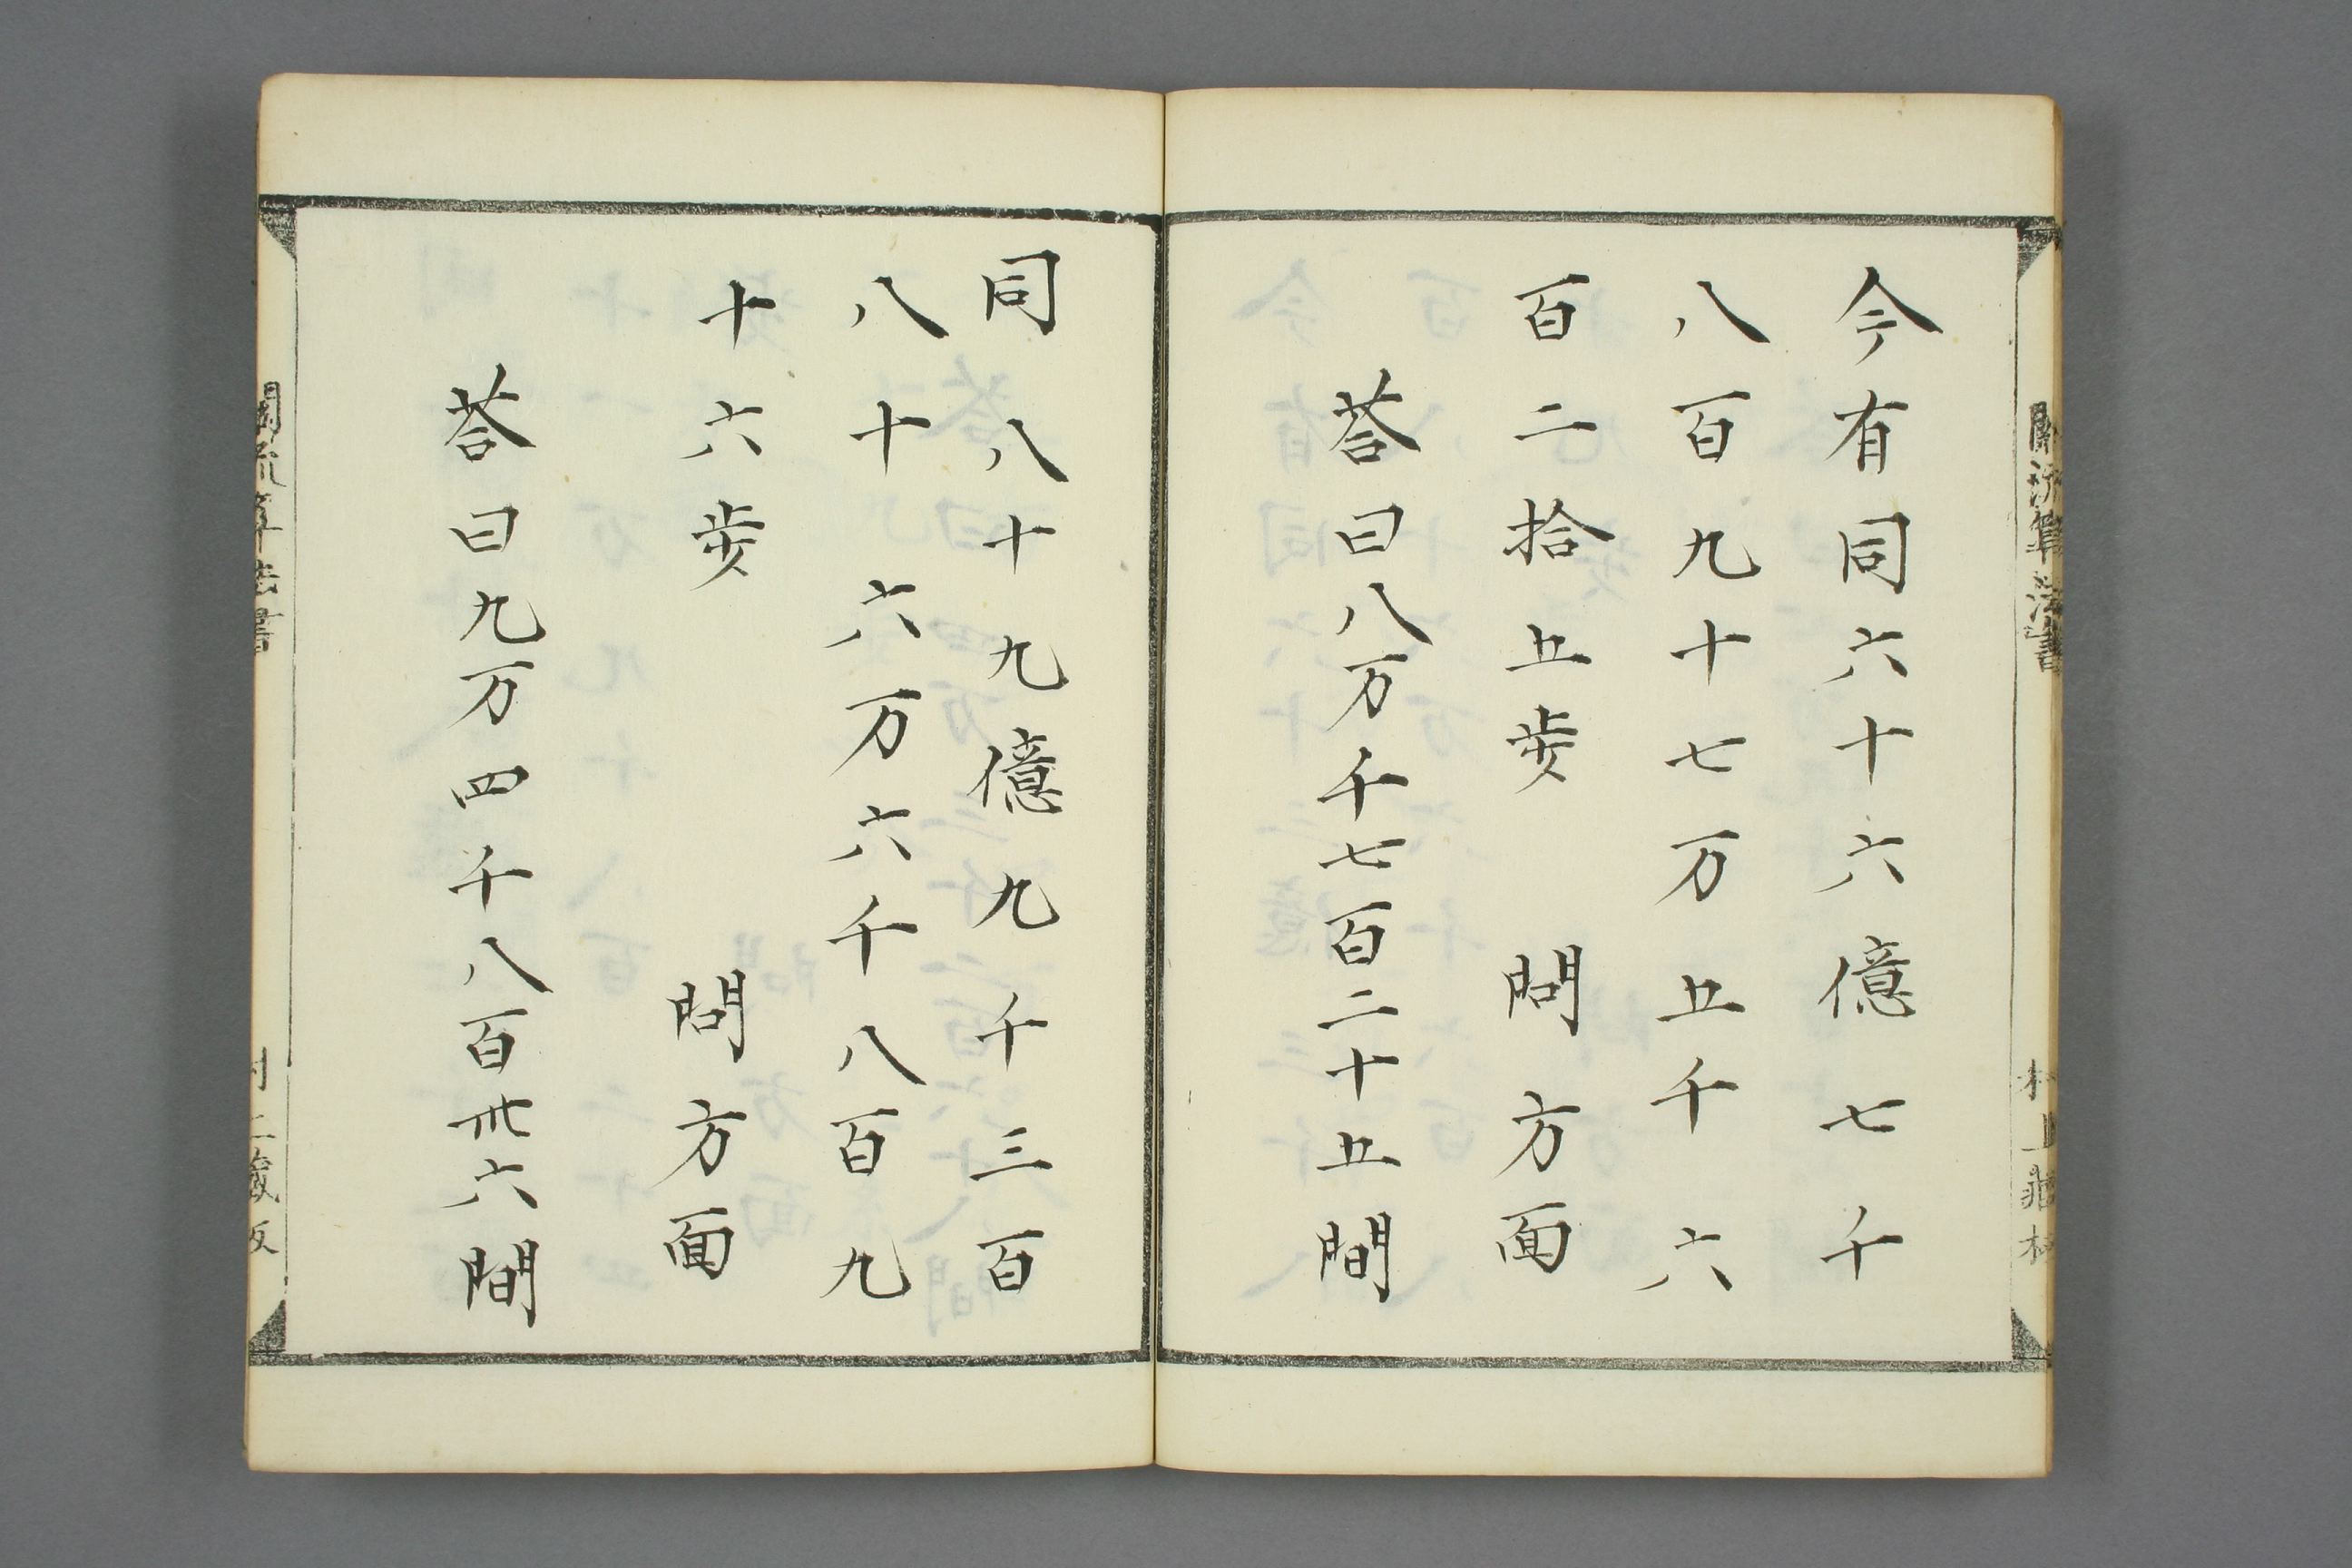 關流算法書
今有同六十六億七千
八百九十七万五千六
百二拾五歩　問方面
荅曰八万千七百二十五間
同八十九億九千三百
八十六万六千八百九
十六歩　問方面
荅曰九万四千八百卅六間